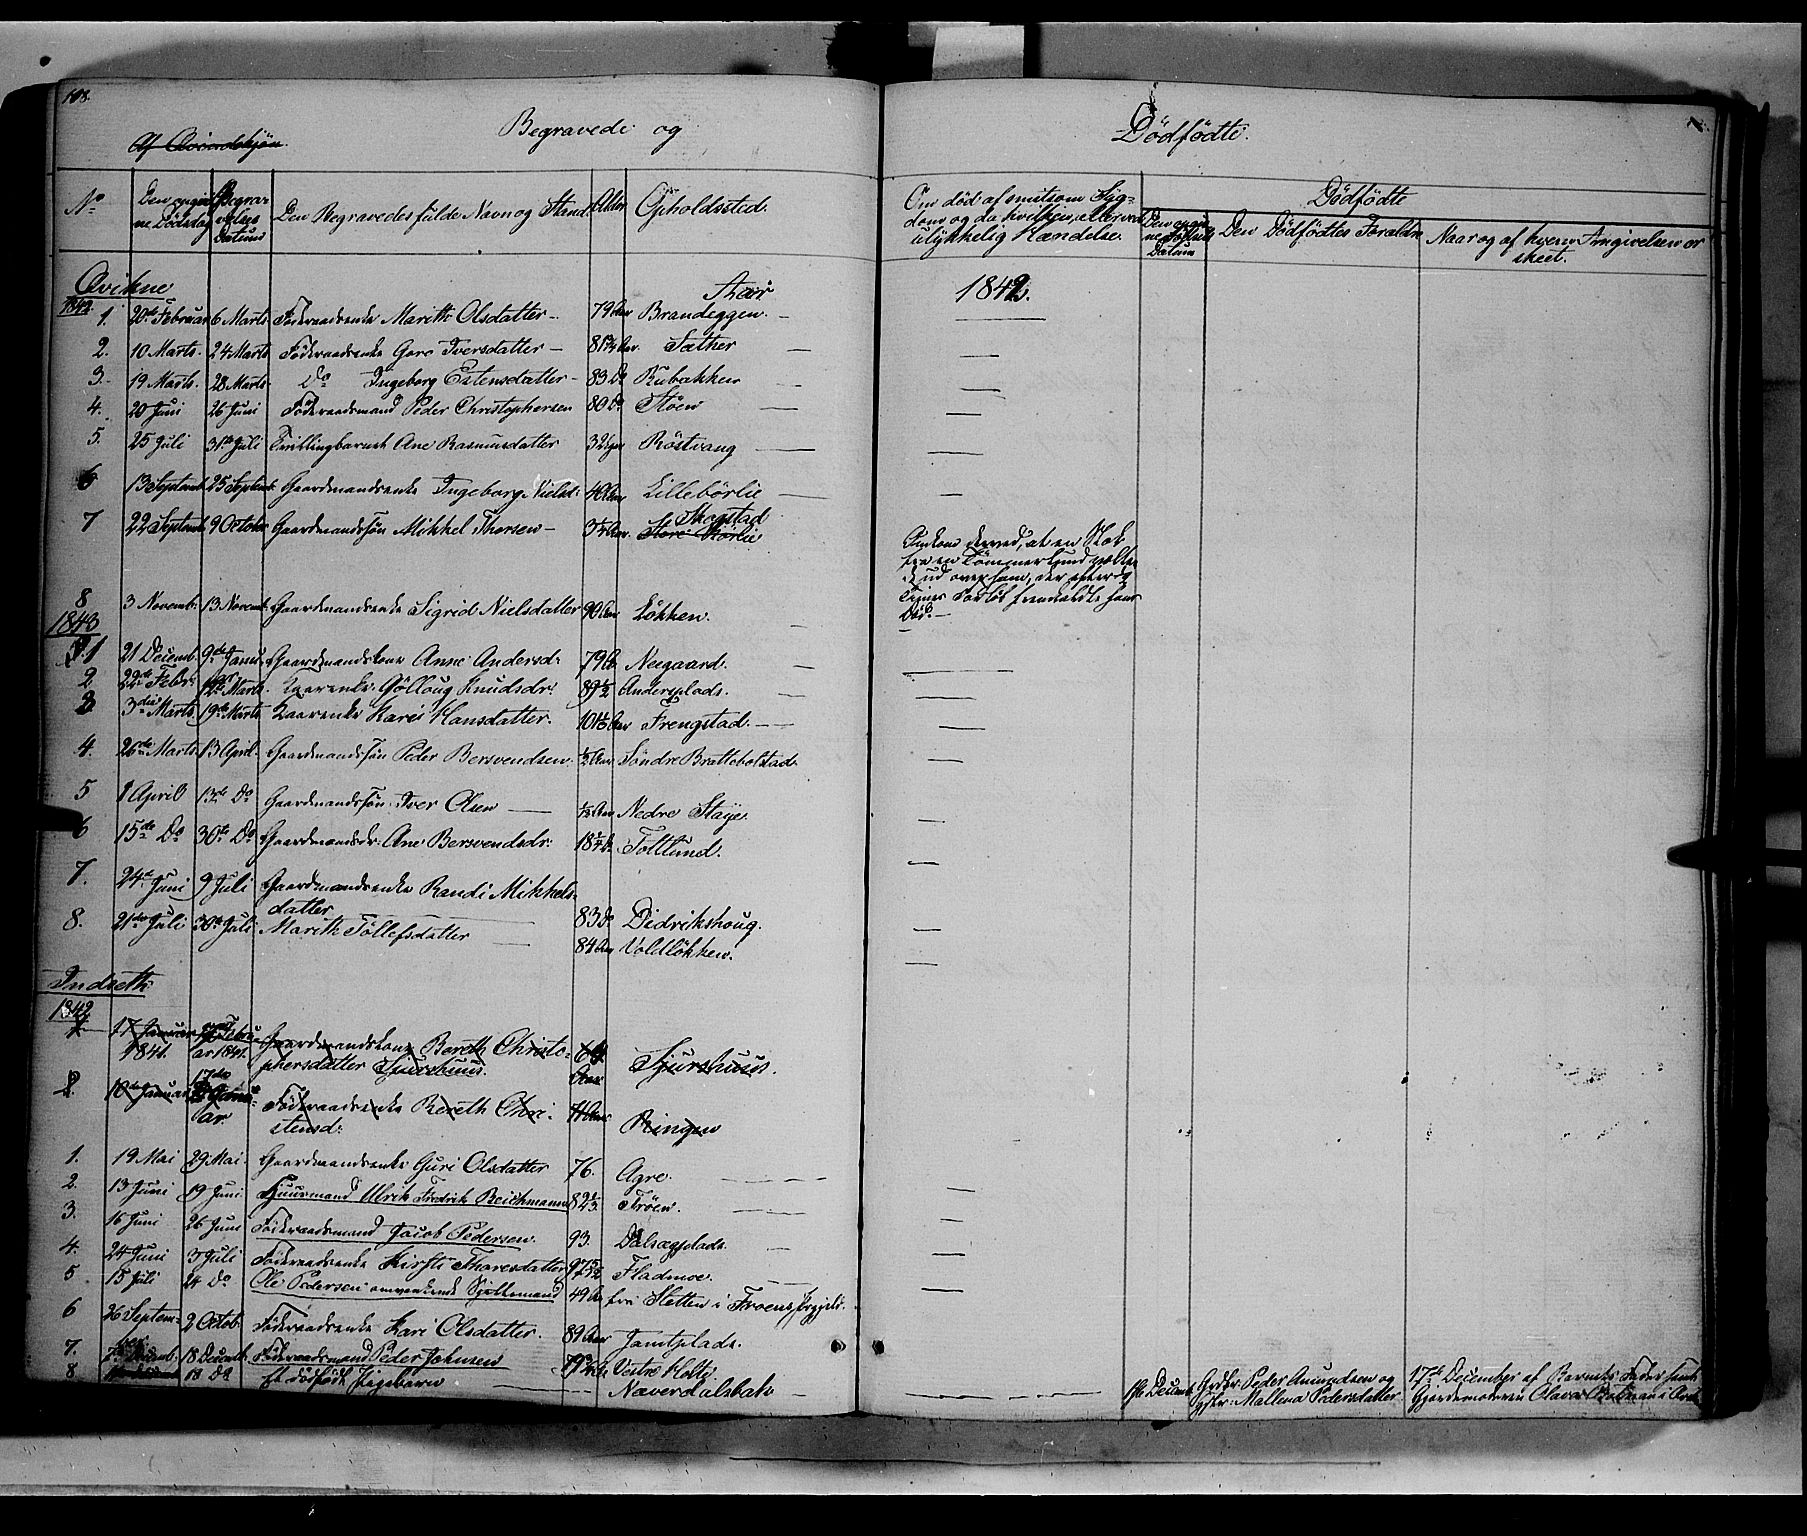 108.
Begravede og
Dödfödte.
Af Qvindekjön.
No
Den opgivne Dödsdag
Begravelses Datum
Den Begravedes fulde Navn og Stand
Alder
Opholdssted.
Om död af smitsom Sygdom og da hvilken, eller ved ulykkelig Hændelse.
Dödfödte
Den opgivne Födsels Datum
Den Dödfödtes Forældre
Naar og af hvem Anmeldelsen er skeet.
Qvikne
1842.
1842.
1. 20de Februar 6 Marts. Föderaadsenke Marith Olsdatter – 79 Aar Brandeggen. –
2. 10 Marts. 24 Marts Föderaadsenke Goro Iversdatter – Aar. Sæther –
3. 19 Marts. 28 Marts. Do Ingeborg Estensdatter – 83 Do Kubakken –
4. 20 Juni 26 Juni Föderaadsmand Peder Christophersen 80 Do Stöen –
5. 25 Juli 31te Juli Tvillingbarnet Ane Rasmusdatter Röstvang –
6 13 Septemb. 25 Septemb. Gaardmandsenke Ingeborg Nielsd: 40 Aar Lillebörlie –
7 22 Septemb. 9 October Gaardmandsön Mikkel Thorsen – 3 1/4 Aar. Skogstad
Store Börlie
Omkom derved, at en Stok
fra en Tömmer
ud over ham, der efter
Forlöb fremkaldte hans
Död. –
8 3 Novemb: 13 Novemb. Gaardmandsenke Sigrid Nielsdatter 90 Aar Lökken. –
1843
1 21 Decemb. 9de Januar Gaardmandskone Anne Andersd: 79 A. Neegaard. –
2 22de Febr. 12te Marts. Gölloug Knudsdr. 89 1/2 Andersplads. –
3. 3die Marts 19de Marts. Kari Hansdatter. Frengstad. –
4. 26de Marts 13 April. Gaardmandsön Peder Bersvendsen 1/2 Aar Söndre Brattebolstad.
5 1 April 13de Do Gaardmandsön Iver Olsen – 1/2 Aar Nedre Staije.
6 15de Do 30te Do Gaardmandsdr. Ane Bersvendsdr. Toltlund.
7. 24de Juni 9 Juli Gaardmandsenke Randi Mikkelsdatter 83 Do Didrikshoug.
8. 21de Juli 30te Juli Marith Töllefsdatter – 84 Aar Voldlökken.
Indseth
1842
1 17 Januar 1841. Februar 1841. Gaardmandskone Bereth Christophersdatter Sjurshuus. 64 Aar Sjurshuus.
2. 10de Januar 17de Januar. Föderaadsenke Bereth Christensd: Aar Ringen
1. 19 Mai 29 Mai. Gaardmandsenke Guri Olsdatter 76. Agre.
2. 13 Juni 19 Juni Huusmand Ulrik Fredrik Reichmann Fröen.
3. 16 Juni 26 Juni Föderaadsmand Jacob Pedersen. 93. Dalsægplads
4. 24 Juni 3 Juli Föderaadsenke Kirsti Thoresdatter Fladmoe. –
5 15 Juli 24 Do Ole Pedersen omvankende 49 Aar fra Sletten i Froens Prgjeld.
6 26 September 2 Octob. Föderaadsenke Kari Olsdatter. 89 Aar Jamtplads.
7. Decemb. 18 Decemb. Föderaadsmand Peder Johnsen Vestre Holte
8 Do Et dödfödt Pigebarn Næverdalsbak –
16 Decemb. Grdbr. Peder Amundsen og
Mallena Pedersdatter
17de December af Barnets Fader samt
Gjordemoderen Olava